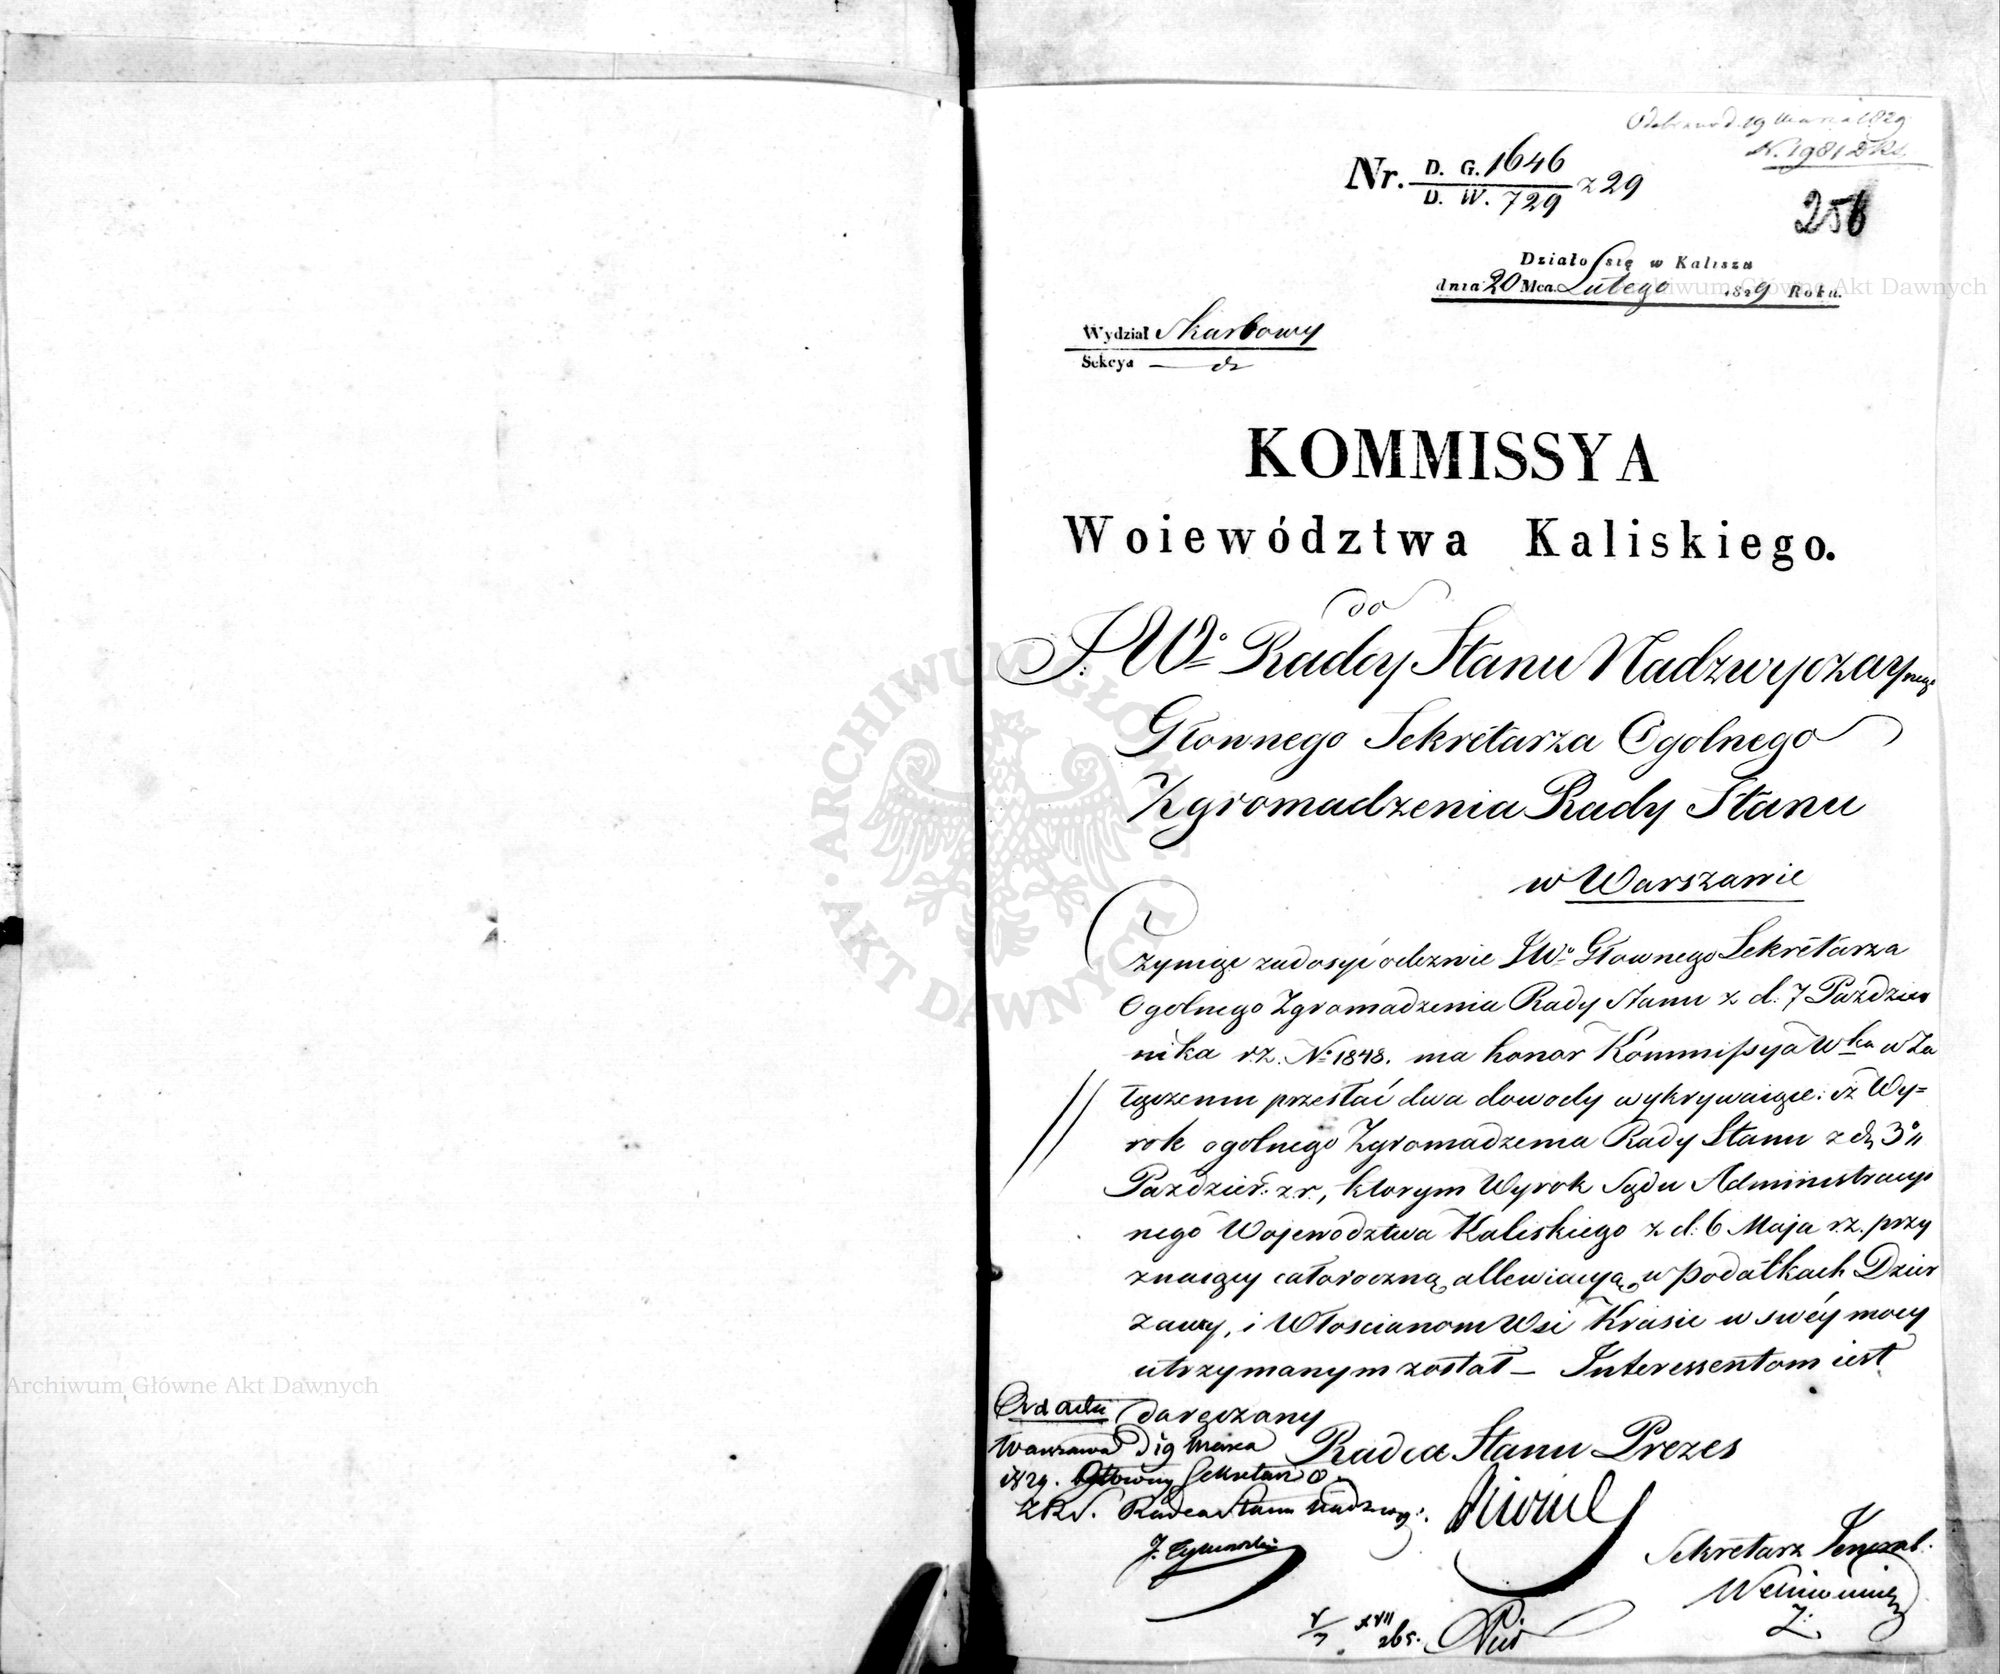 Odebrano d. 19 Marca 1829
N. 1981 D Ks.
Nr. D. G. 1646 z 29
D. W. 729
256
Działo się w Kaliszu
dnia 20 Mca. Lutego 1829 Roku.
Wydział Skarbowy
Sekcya
KOMMISSYA
Woiewództwa Kaliskiego.
do
J. Wo Radcy Stanu Nadzwyczaynego
Głownego Sekretarza Ogolnego
Zgromadzenia Rady Stanu
w Warszawie
Czyniąc zadosyć odezwie JWo Głownego Sekretarza
Ogolnego Zgromadzenia Rady Stanu z d: 7 Paździer
nika r.z. No 1848. ma honor Kommissya Wka w Za
łączeniu przesłać dwa dowody wykrywaiące: iż Wy=
rok ogolnego Zgromadzenia Rady Stanu z d. 3o
Paździer: z.r., ktorym Wyrok Sądu Administracyi
nego Wojewodztwa Kaliskiego z d: 6 Maja r.z. przy
znaiący całoroczną allewiacyą w podatkach Dzier
zawcy, i Włoscianom Wsi Krasic w swéy mocy
utrzymanym został — Interessentom iest
doręczany
Ord acta
Warszawa d 19 Marca
1829. Głowny Sekretarz O.
Z.R.S. Radca Stanu Nadzwy:
Radca Stanu Prezes
Sekretarz Jeneral.
XVII
265.
Archiwum Główne Akt Dawnych
Archiwum Główne Akt Dawnych
ARCHIWUM GŁÓWNE · AKT DAWNYCH ·